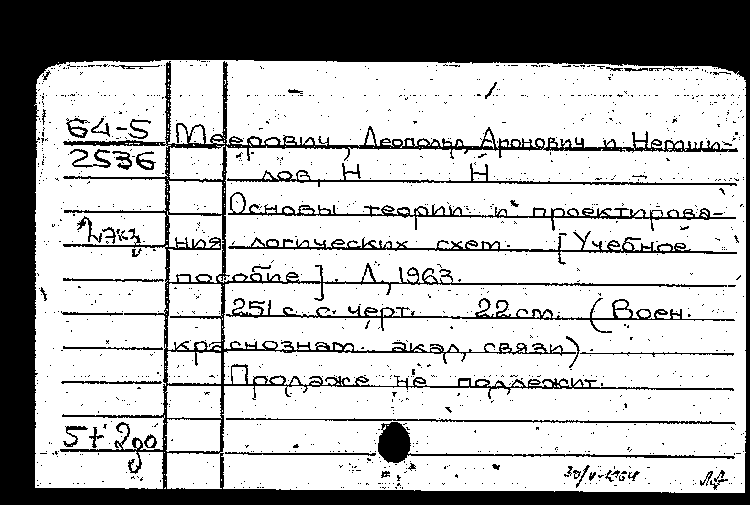 64-5
2536
Меерович, Леопольд Аронович и Немши-
лов, Н Н
Основы теории и проектирова-
2 экз
ния логических схем. [Учебное
пособие]. Л, 1963.
251 с. с. черт. 22 см. (Воен.
краснознам. акад. связи).
Продаже не подлежит.
30/V-1964